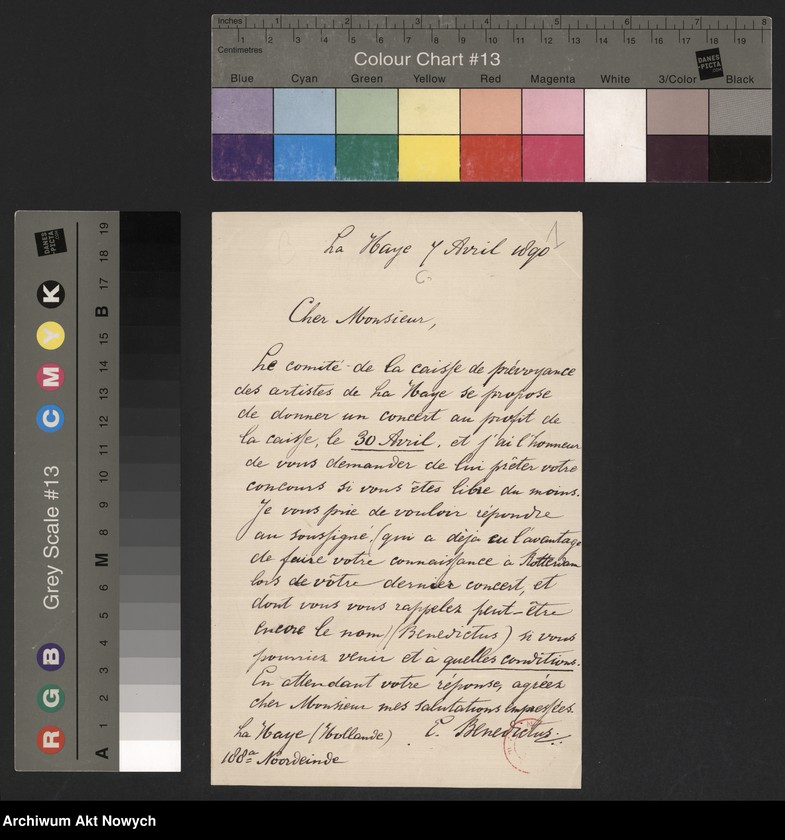 Inches 1 2 3 4 5 6 7 8
Centimetres 1 2 3 4 5 6 7 8 9 10 11 12 13 14 15 16 17 18 19
Colour Chart #13
DANES-PICTA
.COM
Blue Cyan Green Yellow Red Magenta White 3/Color Black
Grey Scale #13
R G B C M Y K
DANES-PICTA
.COM
A 1 2 3 4 5 6 M 8 9 10 11 12 13 14 15 B 17 18 19
La Haye 7 Avril 1890
1
Cher Monsieur,
Le comité de la caisse de prévoyance
des artistes de La Haye se propose
de donner un concert au profit de
la caisse, le 30 Avril, et j'ai l'honneur
de vous demander de lui prêter votre
concours si vous êtes libre du moins.
Je vous prie de vouloir répondre
au soussigné, (qui a déja eu l'avantage
de faire votre connaissance à Rotterdam
lors de vôtre dernier concert, et
dont vous vous rappelez peut-être
encore le nom) (Benedictus) si vous
pourriez venir et à quelles conditions.
En attendant votre réponse, agréez
cher Monsieur mes salutations empressées.
La Haye (Hollande) Benedictus
188a Noordeinde
Archiwum Akt Nowych